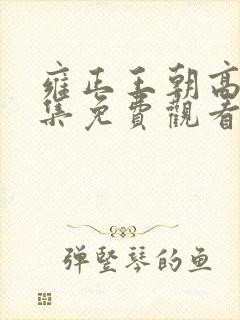 雍正王朝高
集免費觀看
弹竖琴的鱼